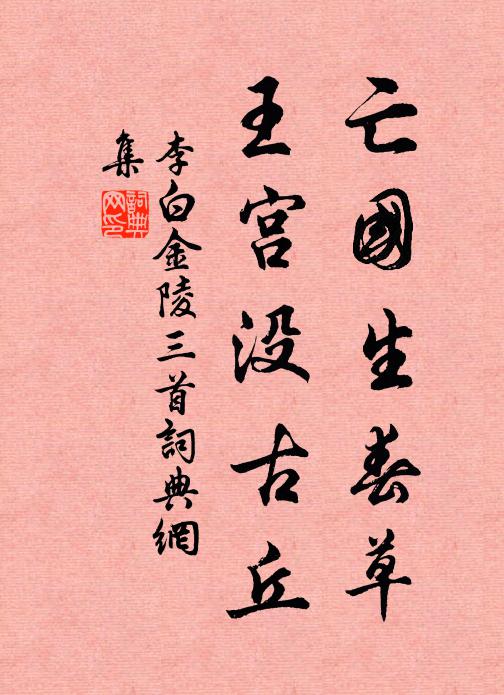 亡國生春草
王宮没古丘
李白金陵三首詞典網
集
詞典
网印